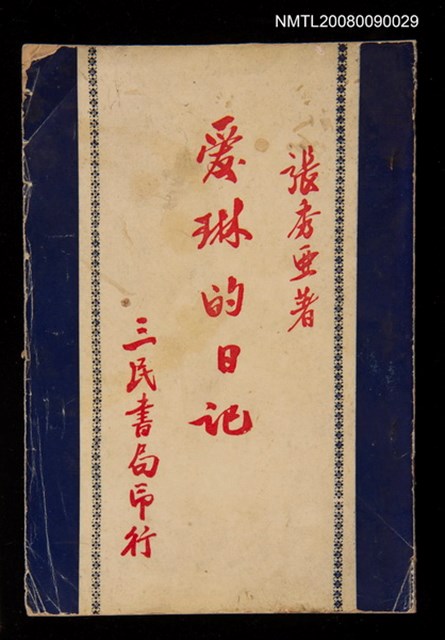 NMTL20080090029
張秀亞著
愛琳的日記
三民書局印行